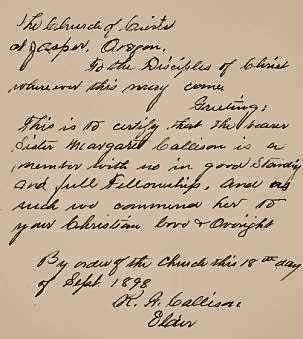 The Church of Christ
at Jasper, Oregon.
To the Disciples of Christ
where ever this may come
Greeting:
This is to certify that the bearer
Sister Margaret Callison is a
member with us in good Standing
and full Fellowship, and as
such we commend her to
your Christian love & Oversight
By order of the Church this 18th day
of Sept 1898
Callison
Elder